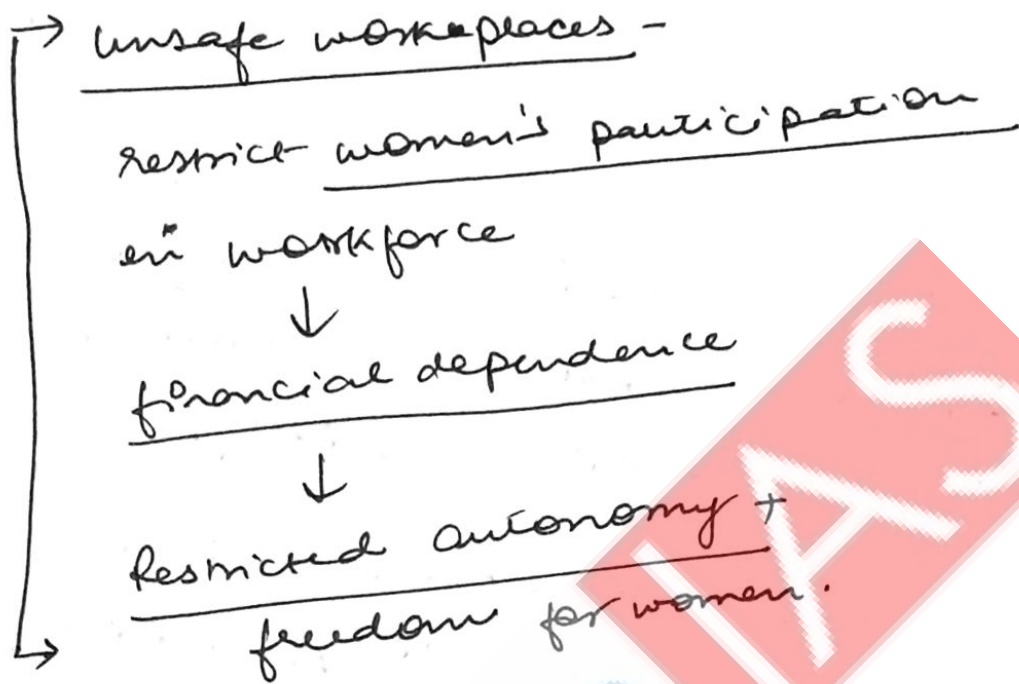 → unsafe workeplaces -
restrict women's participation
in workforce
↓
financial dependence
↓
Restricted autonomy +
freedom for women.
IAS